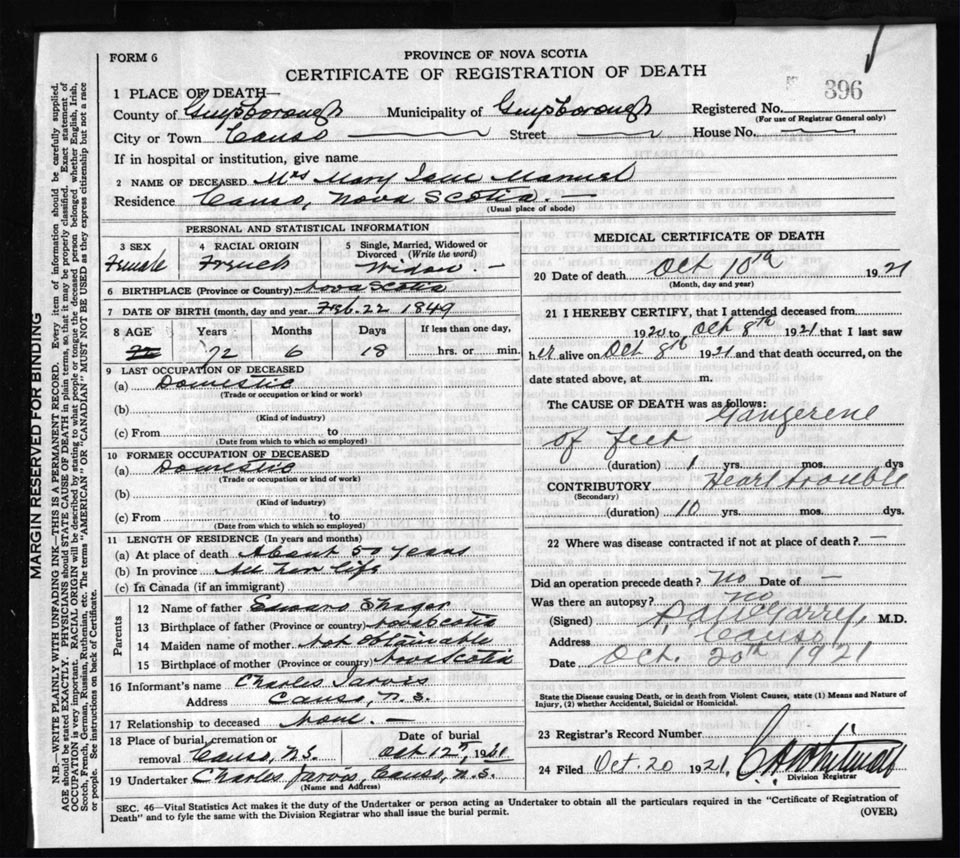 FORM 6
PROVINCE OF NOVA SCOTIA
CERTIFICATE OF REGISTRATION OF DEATH
396
1 PLACE OF DEATH—
County of Guysborough Municipality of Guysborough Registered No.
(For use of Registrar General only)
City or Town Canso Street House No.
If in hospital or institution, give name
2 NAME OF DECEASED Mrs Mary Jane Manuel
Residence Canso, Nova Scotia.
(Usual place of abode)
PERSONAL AND STATISTICAL INFORMATION
3 SEX 4 RACIAL ORIGIN 5 Single, Married, Widowed or Divorced (Write the word)
Female French Widow
6 BIRTHPLACE (Province or Country) Nova Scotia
7 DATE OF BIRTH (month, day and year Feb. 22 1849
8 AGE Years Months Days If less than one day,
72 6 18 hrs. or min.
9 LAST OCCUPATION OF DECEASED
(a) Domestic
(Trade or occupation or kind or work)
(b)
(Kind of industry)
(c) From to
(Date from which to which so employed)
10 FORMER OCCUPATION OF DECEASED
(a) Domestic
(Trade or occupation or kind or work)
(b)
(Kind of industry)
(c) From to
(Date from which to which so employed)
11 LENGTH OF RESIDENCE (In years and months)
(a) At place of death About 50 years
(b) In province All her life
(c) In Canada (if an immigrant)
Parents
12 Name of father Edward
13 Birthplace of father (Province or country) Nova Scotia
14 Maiden name of mother Not Obtainable
15 Birthplace of mother (Province or country) Nova Scotia
16 Informant's name Charles Jarvis
Address Canso, N.S.
17 Relationship to deceased None. —
18 Place of burial, cremation or removal Canso, N.S. Date of burial Oct 12th, 1921
19 Undertaker Charles Jarvis, Canso, N.S.
(Name and Address)
MEDICAL CERTIFICATE OF DEATH
20 Date of death Oct 10th 1921
(Month, day and year)
21 I HEREBY CERTIFY, that I attended deceased from
1920 to Oct 8th 1921 that I last saw
her alive on Oct 8th 1921 and that death occurred, on the
date stated above, at m.
The CAUSE OF DEATH was as follows: Gangerene
of feet
(duration) 1 yrs. mos. dys
CONTRIBUTORY Heart trouble
(Secondary)
(duration) 10 yrs. mos. dys.
22 Where was disease contracted if not at place of death? —
Did an operation precede death? No Date of —
Was there an autopsy? no
(Signed) M.D.
Address Canso
Date Oct. 20th 1921
State the Disease causing Death, or in death from Violent Causes, state (1) Means and Nature of
Injury, (2) whether Accidental, Suicidal or Homicidal.
23 Registrar's Record Number
24 Filed Oct. 20 1921,
Division Registrar
SEC. 46—Vital Statistics Act makes it the duty of the Undertaker or person acting as Undertaker to obtain all the particulars required in the "Certificate of Registration of
Death" and to fyle the same with the Division Registrar who shall issue the burial permit. (OVER)
MARGIN RESERVED FOR BINDING
N.B.—WRITE PLAINLY WITH UNFADING INK—THIS IS A PERMANENT RECORD. Every item of information should be carefully supplied.
AGE should be stated EXACTLY. PHYSICIANS should STATE CAUSE OF DEATH in plain terms, so that it may be properly classified. Exact statement of
OCCUPATION is very important. RACIAL ORIGIN will be described by stating to what people or tongue the deceased person belonged whether English, Irish,
Scotch, French, German, Russian, Ruthenian, etc. The terms "AMERICAN" OR "CANADIAN" MUST NOT BE USED as they express citizenship but not a race
or people. See instructions on back of Certificate.